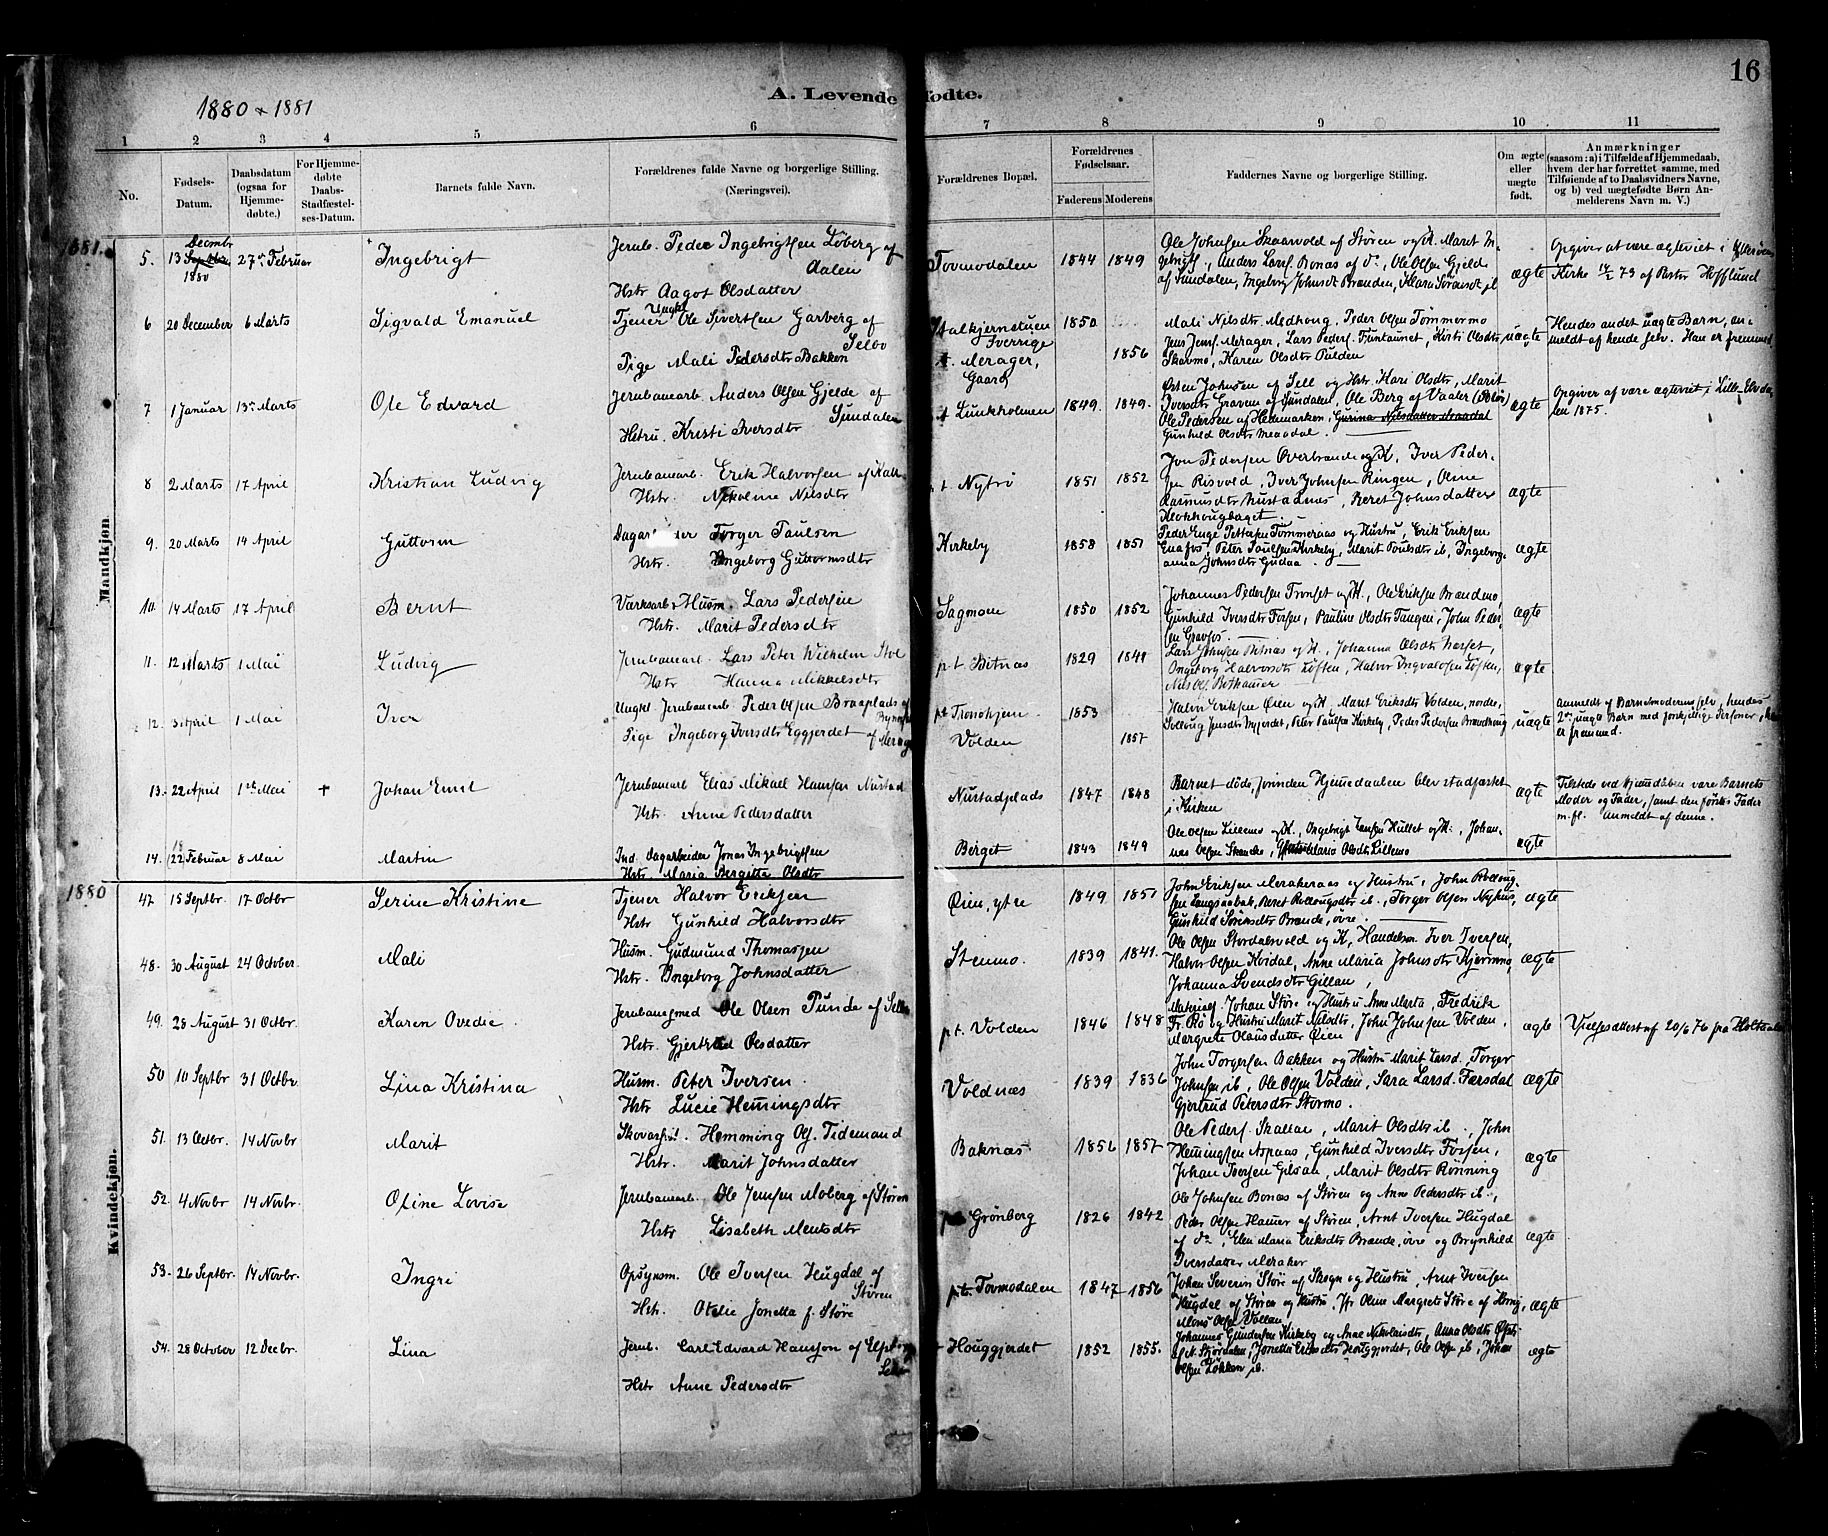 16
1880 & 1881
A. Levende fødte.
1 2 3 4 5 6 7 8 9 10 11
No.
Fødsels-Datum.
Daabsdatum (ogsaa for Hjemmedøbte.)
For Hjemmedøbte Daabs-Stadfæstelses-Datum.
Barnets fulde Navn.
Forældrenes fulde Navne og borgerlige Stilling. (Næringsvei).
Forældrenes Bopæl.
Forældrenes Fødselsaar.
Faderens Moderens
Faddernes Navne og borgerlige Stilling.
Om ægte eller uægte født.
Anmærkninger (saasom: a) i Tilfælde af Hjemmedaab, hvem der har forrettet samme, med Tilføiende af to Daabsvidners Navne, og b) ved uægtefødte Børn Anmelderens Navn m. V.)
1881.
Mandkjøn.
5. 13 Septbr. Decmbr 1880 27de Februar Ingebrigt
Jernb. Peder Ingebrigtsen Løberg af Aalen
Hstr Aagot Olsdatter
Tovmodalen 1844 1849
Ole Johnsen Skaarvold af Støren og K. Marit
Anders Lars. Bonas af do, Ole Olsen Gjeld
af Sundalen, Ingeborg Johnsdt Brenden,
ægte
Opgiver at være ægteviet i
Kirke 73 af Pastor Hofflund
6 20 December 6 Marts Sigvald Emanuel
Tjener Ungkl Ole Sivertsen Garberg af Selbo
Pige Mali Pedersdtr Bakken
Sverrige
Meraker, Gaard
1850 1856
Mali Nilsdtr Medhong, Peder Olsen Tømmermo
Jens Jens. Meraker, Lars Peders. Funtaunet, Kirsti Olsdtr
Skarmo, Karen Olsdtr
uægte
Hendes andet uægte Barn, an-
meldt af hende selv. Han er fremmed
7 1 Januar 13de Marts Ole Edvard
Jernbanearb. Anders Olsen Gjelde af Sundalen
Hstru. Kristi Iversdtr
Lunkholmen 1849. 1849.
Østen Johnsen af Sell og Hstr. Kari Olsdtr, Marit
Iversdtr Graven af Sundalen, Ole Berg af Vaaler (Solør)
Ole Pedersen af Hedemarken, Gurina Nilsdatter Meraadal
Gunhild Olsdtr Meaadal.
ægte
Opgiver at være ægteviet i Lille Elvda-
len 1875.
8 2 Marts 17 April Kristian Ludvig
Jernbanearb. Erik Halvorsen af
Hstr. Nikoline Nilsdtr
Nytrø 1851 1852
Jon Pedersen Overbrande og K, Iver Peder-
sen Risvold, Iver Johnsen Ringen, Oline
Rasmusdtr, Beret Johnsdatter
Klokhouglaget.
ægte
9. 20 Marts 14 April Guttorm
Dagarbeider Torger Paulsen
Hstr. Ingeborg Guttormsdtr
Kirkeby 1858 1851
Peder Inge Petersen Tømmeraas og Hustru, Erik Eriksen
Enafos, Peter Paulsen Kirkeby, Marit Poulsdtr ib, Ingeborg-
anna Johnsdtr Gudaa.
ægte
10. 14 Marts 17 April Bernt
Værksarb & Husm. Lars Pedersen
Hstr. Marit Pedersdtr
Sagmoen 1850 1852
Johannes Pedersen Tronset og K., Ole Eriksen Brandmo,
Gunhild Iversdtr Forsen, Pauline Olsdtr Tangen, John Peder-
sen Gravfos.
ægte
11. 12 Marts 1 Mai Ludvig
Jernbanearb. Lars Peter Wilhelm
Hstr Hanna Mikkelsdtr
p.t. Bitnas 1829 1849
Lars Johnsen Bitnas og K., Johanna Olsdtr
Ingeborg Halvorsdtr Løften, Halvor Ingvaldsen Løften,
Nils Ols.
ægte
12. 3 April 1 Mai Iver
Ungkl Jernbanearb Peder Olsen Braaplads af
Pige Ingeborg Iversdtr Eggjerdet af
pt Tronshjem
Volden
1853 1857
Halvor Eriksen Øien og K, Marit Eriksdtr Volden, nordre,
Sollaug Jensdtr, Peter Paulsen Kirkeby, Peder Pedersen
uægte
anmeldt af Barnemoderen selv, hendes
2det uægte Barn med forskjellige Personer,
er fremmed.
13. 22 April 1ste Mai + Johan Emil
Jernbanearb Elias Mikael Hansen Nustad
Hstr. Anne Pedersdatter
Nustadplads 1847 1848
Barnet døde, forinden Hjemmedaaben blev stadfæstet
i Kirken
ægte
Tilstede ved Hjemdåben vare Barnets
Moder og Fader, samt den førstes Fader
m.fl. Anmeldt af denne.
14. 18 (22) Februar 8 Mai Martin
Ind. dagarbeider Jonas Ingebrigtsen
Hstr. Maria Bergitte Olsdt
Berget 1843 1849
Ole Olsen Lillemo og K., Ingebrigt Hullet og K., Johan-
nes Olsen, Maria Olsdtr Lillemo
ægte
1880
Kvindekjøn.
47 15 Septbr. 17 Octbr Serine Kristine
Tjener Halvor Eriksen
Hstr Gunhild Halvorsdtr
Øien, ytre 1849 1851
John Eriksen Merakeraas og Hustru, John Rolloug-
sen Langsaabak, Beret Rollougsdtr ib., Torger Olsen Nyhus,
Gunhild Brande, øvre.
ægte
48. 30 August 24 October. Mali
Husm. Gudmund Thomassen
Hstr. Ingeborg Johnsdatter
Stenmo. 1839 1841.
Ole Olsen Stordalsvold og K, Handelsm Iver Iversen,
Halvor Olsen Kordal, Anne Maria Johnsdtr,
Johanna Svendsdtr Gillan,
ægte
49. 28 August 31 Octbr. Karen Ovedie.
Jernbanesmed Ole Olsen Punde af
Hstr. Gjertrud Olsdatter
p.t. Volden 1846 1848
Johan Støre og Hustru Anne Marta, Fredrik
Fr. Ro og Hustru Marit Nilsdtr, John Johnsen Volden,
Margrete Olausdatter Øien
ægte
Vielsesattest af 20/6 76 fra
50 10 Septbr 31 Octbr. Lina Kristina
Husm. Peter Iversen.
Hstr Lucie Hemingsdtr
Voldnæs 1839 1836
John Torgersen Bakken og Hustru Marit Larsd., Torger
Johnsen ib, Ole Olsen Volden, Sara Larsd. Færsdal
Gjertrud Petersdtr Stormo.
ægte
51. 13 Octbr. 14 Novbr Marit
Hemming Ols. Tidemand
Hstr. Marit Johnsdatter
Baknæs 1856 1857
Ole Peders. Skallar, Marit Olsdtr ib., John
Hemingsen Aspaas, Gunhild Iversdtr Forsen,
Johan Iversen Gilsan, Marit Olsdtr Rønning
ægte
52. 4 Novbr 14 Novbr. Oline Lovise
Jernbanearb. Ole Jensen Moberg af Støren
Hstr Lisabeth Mentsdtr
Grønberg 1826 1842
Ole Johnsen Bonas af Støren og Anne Pedersdtr ib.,
Peder Olsen Hamer af Støren, Arnt Iversen Hugdal
af do, Elen Maria Eriksdtr Brande, øvre og Brynhild
Iversdatter Meraker
ægte
53. 26 Septbr. 14 Novbr. Ingri
Opsynsm. Ole Iversen Hugdal af Støren
Hstr. Otelie Jonetta f. Støre
p.t. Tovmodalen 1847 1856
Johan Severin Støre af Skogn og Hustru, Arnt Iversen
Hugdal af Støren og Hustru, Fr. Oline Margrete Støre af
Mons Olsen Vollan,
ægte
54. 28 October 12 Decbr. Lina
Jernb. Carl Edvard Hansson af
Hstr Anne Pedersdtr
Houggjerdet 1852 1855.
Johannes Gundersen Kirkeby og Anne Nikolaisdtr, Anna Olsdtr
af N. Stjørdalen, Jonetta Eriksdtr Houggjerdet, Ole Olsen ib, Johan
Olsen Løkken ib.
ægte